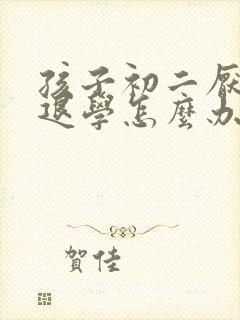 孩子初二厭
退學怎麼办
賀佳